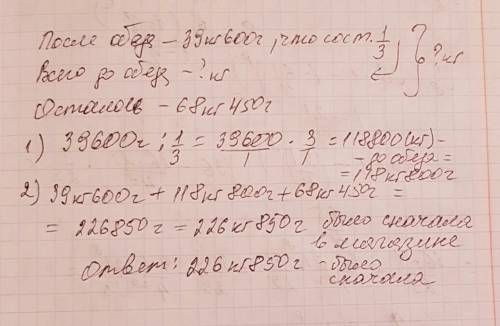 После обед – 39кг600г, что сост. 1/3 } ? кг
Всего до обед – ? кг
Осталось – 68кг450г
1) 39600г : 1/3 = 39600/1 · 3/1 = 118800(кг) –
– до обеда =
= 118кг800г
2) 39кг600г + 118кг800г + 68кг450г =
= 226850г = 226кг850г было сначала
в магазине
Ответ: 226кг850г – было
сначала